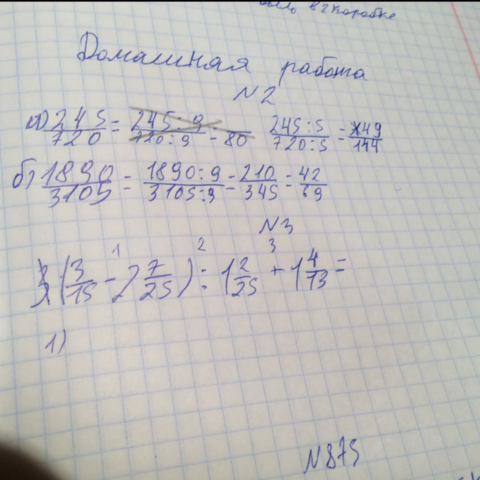 в 2 коробке
Домашняя работа
N2
а) 245/720 = 245:9/720:9 - 80 245:5/720:5 = 49/144
б) 1890/3105 = 1890:9/3105:9 = 210/345 = 42/69
N3
1 2 3
(3/15 - 2 7/25) : 1 2/25 + 1 4/13 =
1)
N875